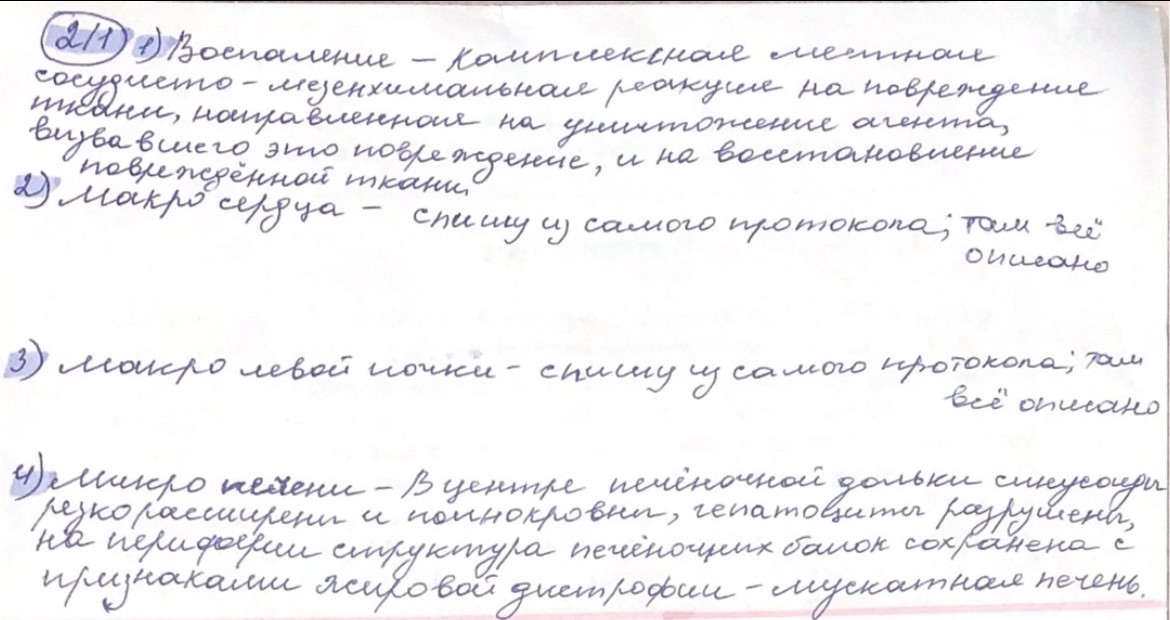 2/1 1) Воспаление – комплексная местная
сосудисто-мезенхимальная реакция на повреждение
ткани, направленная на уничтожение агента,
вызвавшего это повреждение, и на восстановление
повреждённой ткани.
2) Макро сердца – спишу из самого протокола; там всё
описано
3) Макро левой почки – спишу из самого протокола; там
всё описано
4) Микро печени – В центре печёночной дольки синусоиды
резко расширены и полнокровны, гепатоциты разрушены,
на периферии структура печёночных балок сохранена с
признаками жировой дистрофии – мускатная печень.